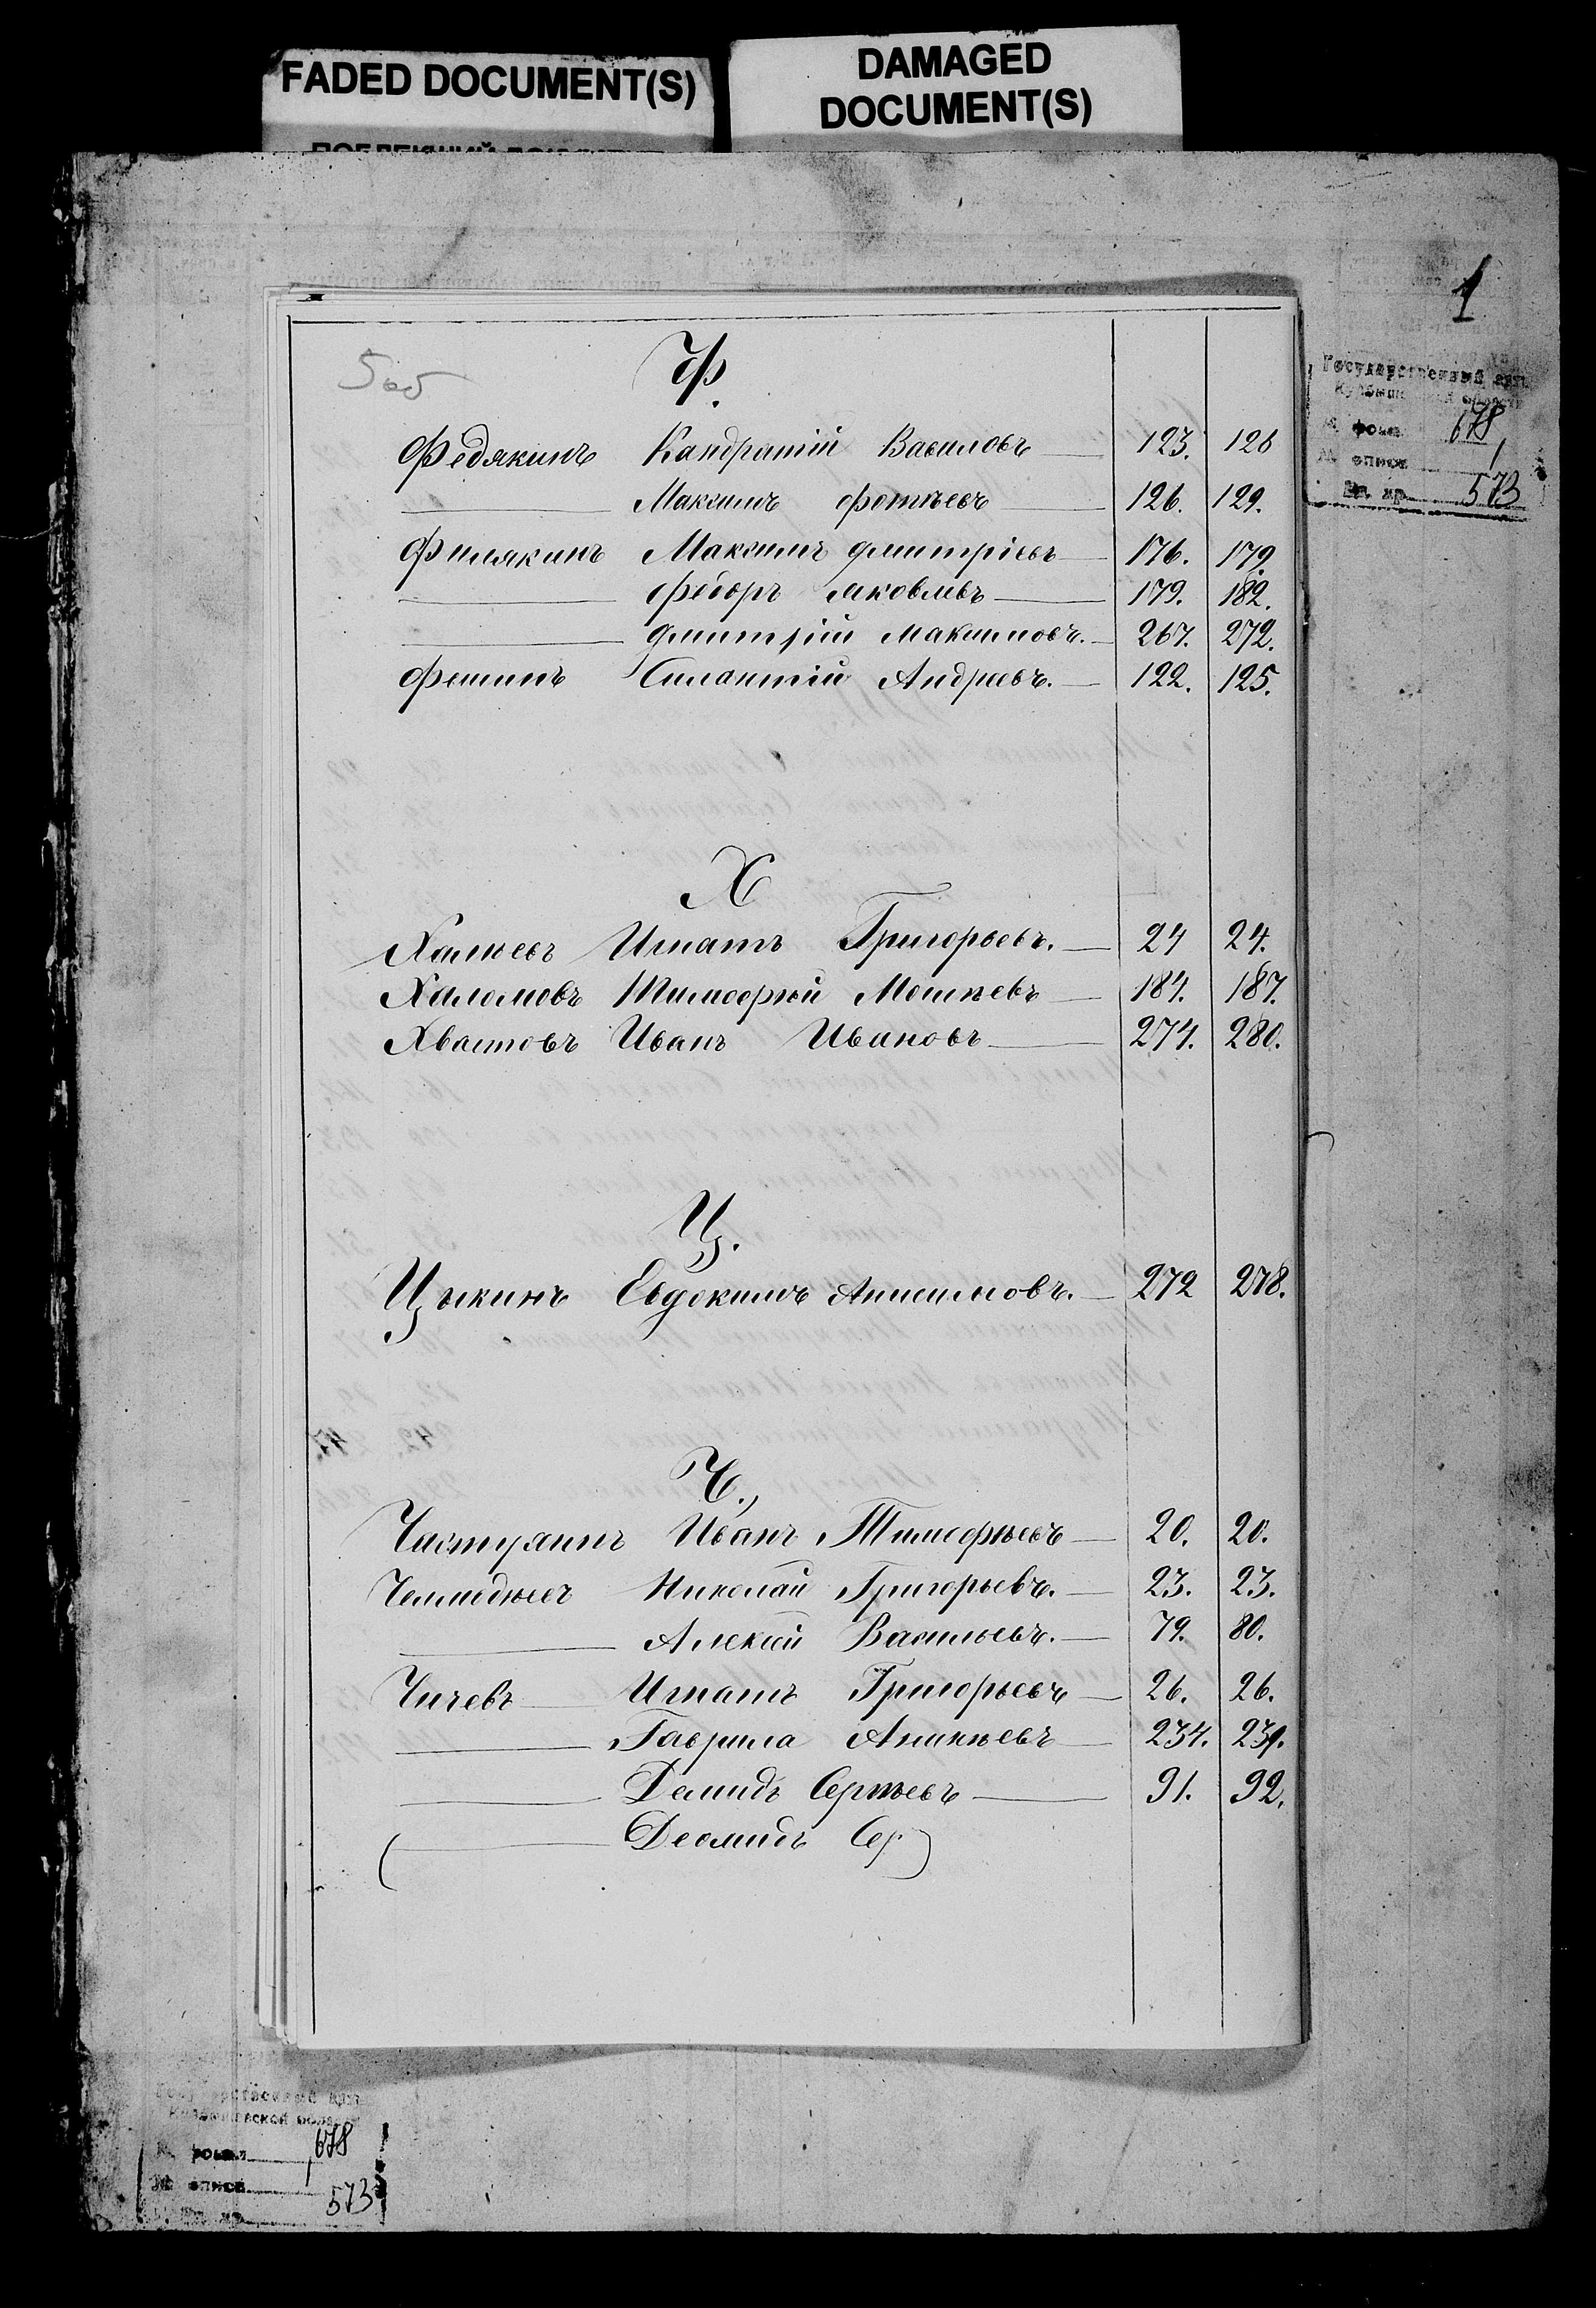 FADED DOCUMENT(S)
DAMAGED
DOCUMENT(S)
1
Государственный арх.
Куйбышевской области
№ фонд 678
№ описи 1
Ед. хр. 573
5об
Ф.
Федякинъ Кандратій Василовъ 123. 126
Максимъ Фотѣевъ 126. 129.
Филякинъ Максимъ Дмитріевъ 176. 179.
Федоръ Яковлевъ 179. 182.
Дмитрій Максимовъ. 267. 272.
Фешинъ Силантій Андреевъ. 122. 125.
Х
Халѣевъ Игнатъ Григорьевъ. 24 24.
Халомовъ Тимофѣй Мошѣевъ 184. 187.
Хвастовъ Иванъ Ивановъ 274. 280.
Ц.
Цыкинъ Евдокимъ Анисимовъ. 272 278.
Ч.
Частухинъ Иванъ Тимофѣевъ 20. 20.
Николай Григорьевъ. 23. 23.
Алексѣй Васильевъ. 79. 80.
Чичевъ Игнатъ Григорьевъ 26. 26.
Гаврила Ананьевъ 234. 239.
Демидъ Сергѣевъ 91. 92.
( Деомидъ Сер )
Государственный арх.
Куйбышевской области
№ фонд 678
№ описи 1
Ед. хр. 573